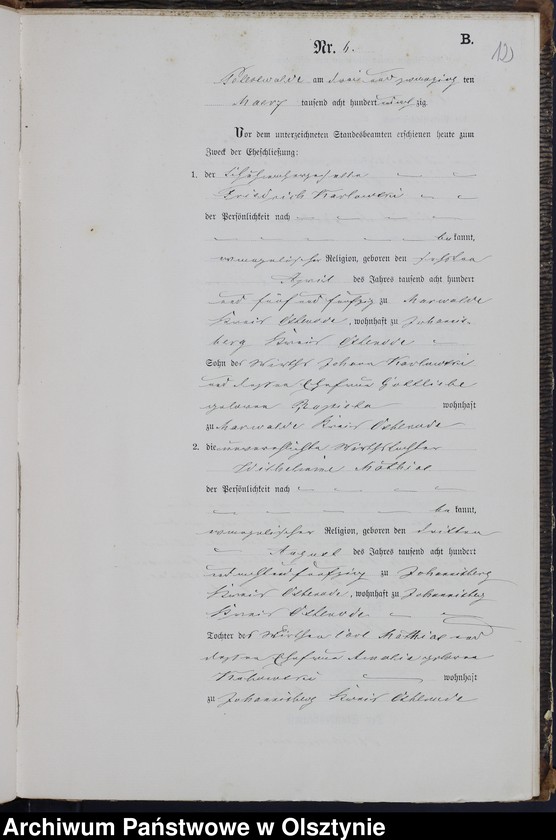 B.
Nr. 6.
am drei und zwanzig ten
Maerz tausend acht hundert zig
Vor dem unterzeichneten Standesbeamten erschienen heute zum
Zweck der Eheschließung:
1. der
Friedrich Karlowski
der Persönlichkeit nach
be kannt,
evangelischer Religion, geboren den sechsten
April des Jahres tausend acht hundert
und fünf und fünfzig zu Marwalde
Kreis Osterode, wohnhaft zu Johannis-
berg Kreis Osterode
Sohn des Wirths Johann Karlowski
und dessen Ehefrau Gottliebe
geborene wohnhaft
zu Marwalde Kreis Osterode
2. die unverehelichte Wirthstochter
Wilhelmine Mathias
der Persönlichkeit nach
be kannt,
evangelischer Religion, geboren den dritten
August des Jahres tausend acht hundert
und acht und fünfzig zu Johannisberg
Kreis Osterode, wohnhaft zu Johannisberg
Kreis Osterode
Tochter des Wirthen Carl Mathias und
dessen Ehefrau Amalie geborene
wohnhaft
zu Johannisberg Kreis Osterode
Archiwum Państwowe w Olsztynie